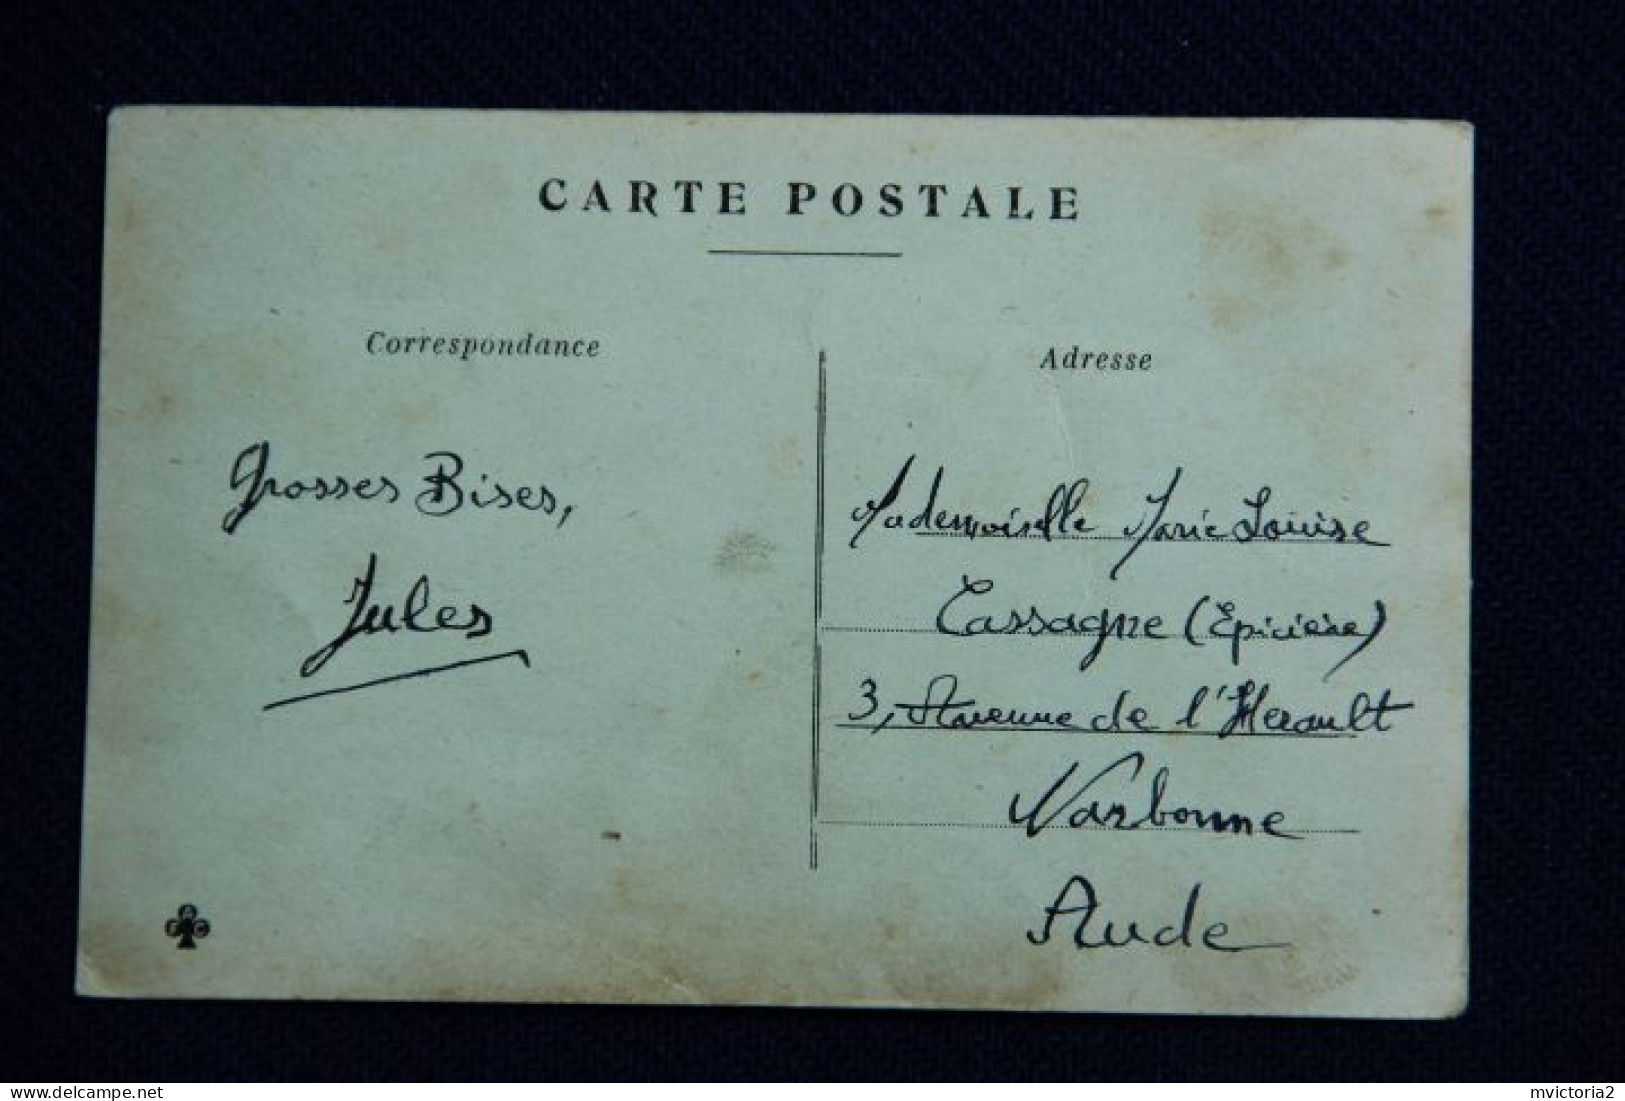 CARTE POSTALE
Correspondance
Adresse
Grosses Bises,
Jules
Mademoiselle Marie Louise
Cassagne (Epicière)
3, Avenue de l'Herault
Narbonne
Aude
delcampe.net
mvictoria2